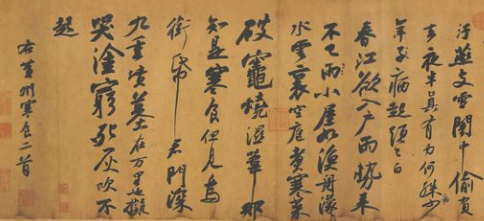 汙燕支雪闇中偷負
去夜半真有力何殊病少
年子病起頭已白
春江欲入戶雨勢來
不已雨小屋如漁舟濛濛
水雲裏空庖煮寒菜
破竈燒濕葦那
知是寒食但見烏
銜帋君門深
九重墳墓在万里也擬
哭塗窮死灰吹不
起
右黃州寒食二首